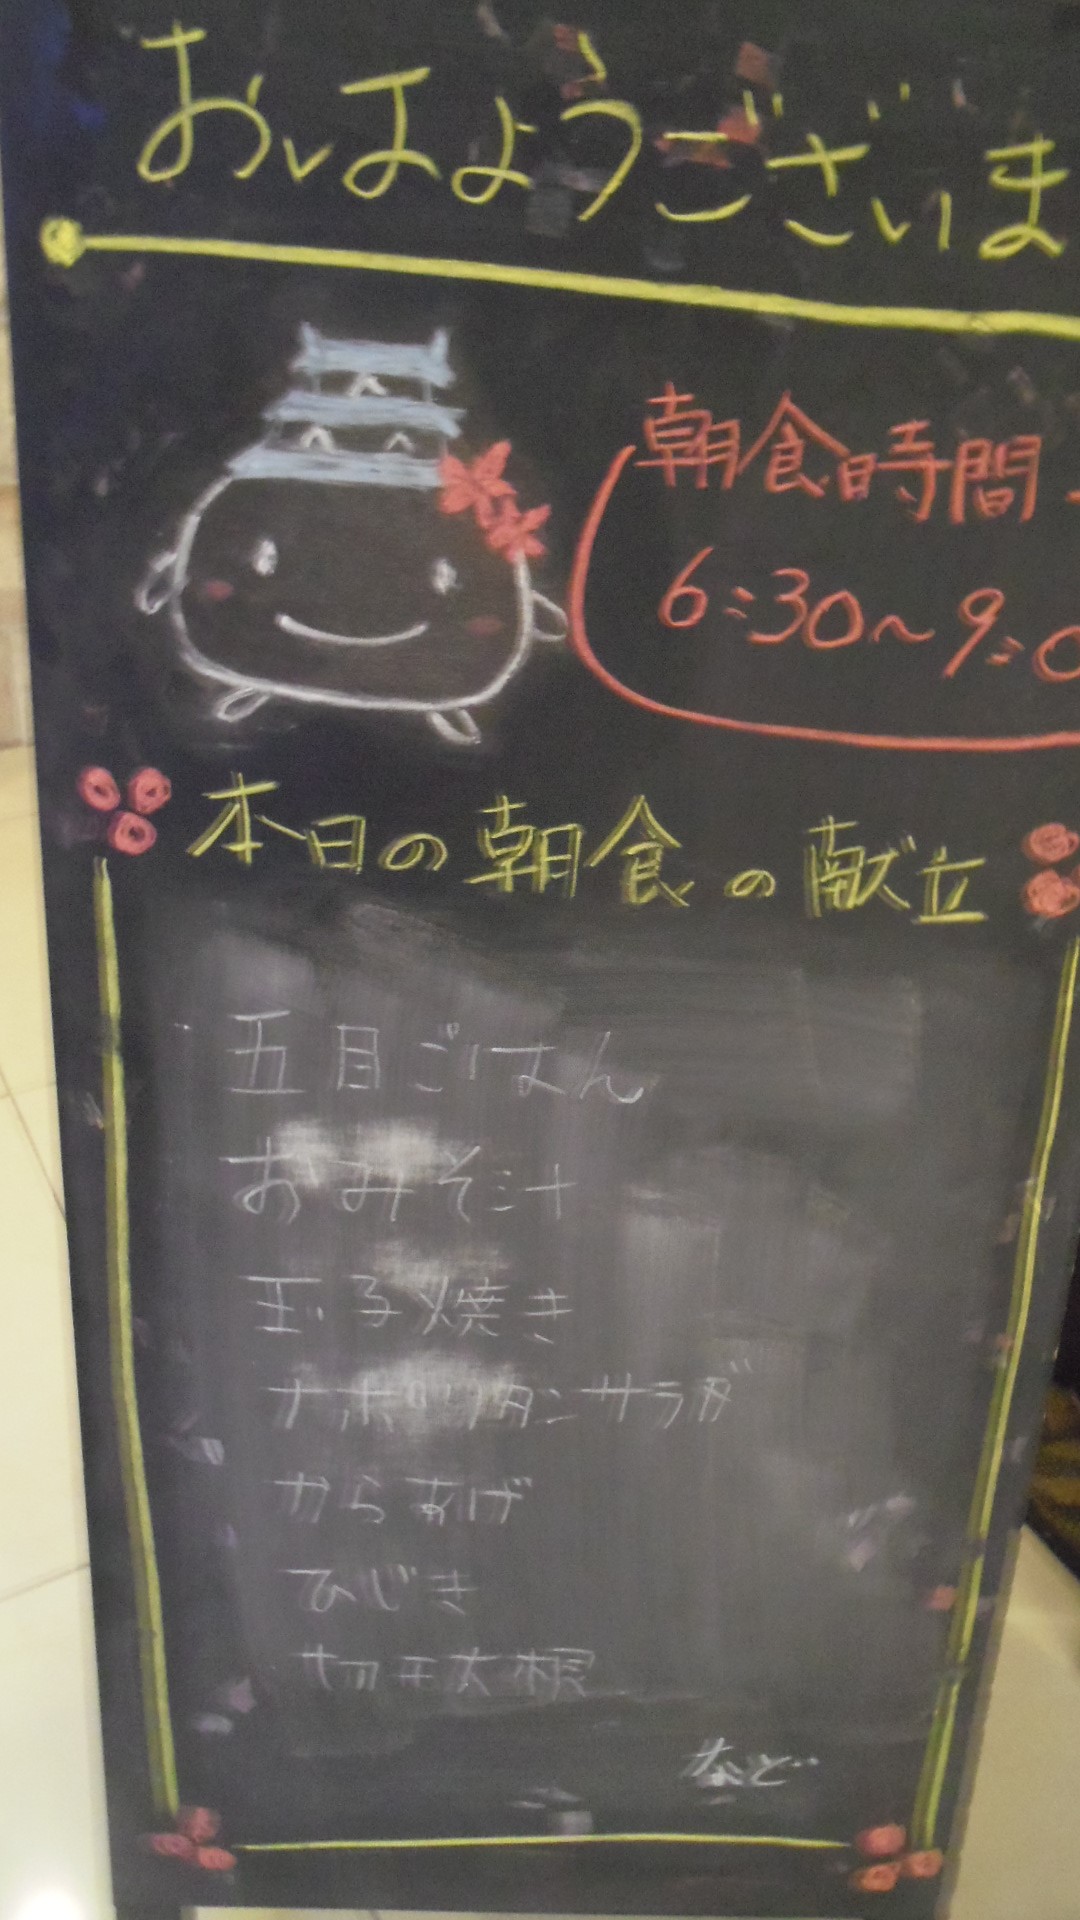 おはようございま
朝食時間
6:30～9:0
本日の朝食の献立
五目ごはん
おみそ汁
玉子焼き
ナポリタンサラダ
からあげ
ひじき
切干大根
など